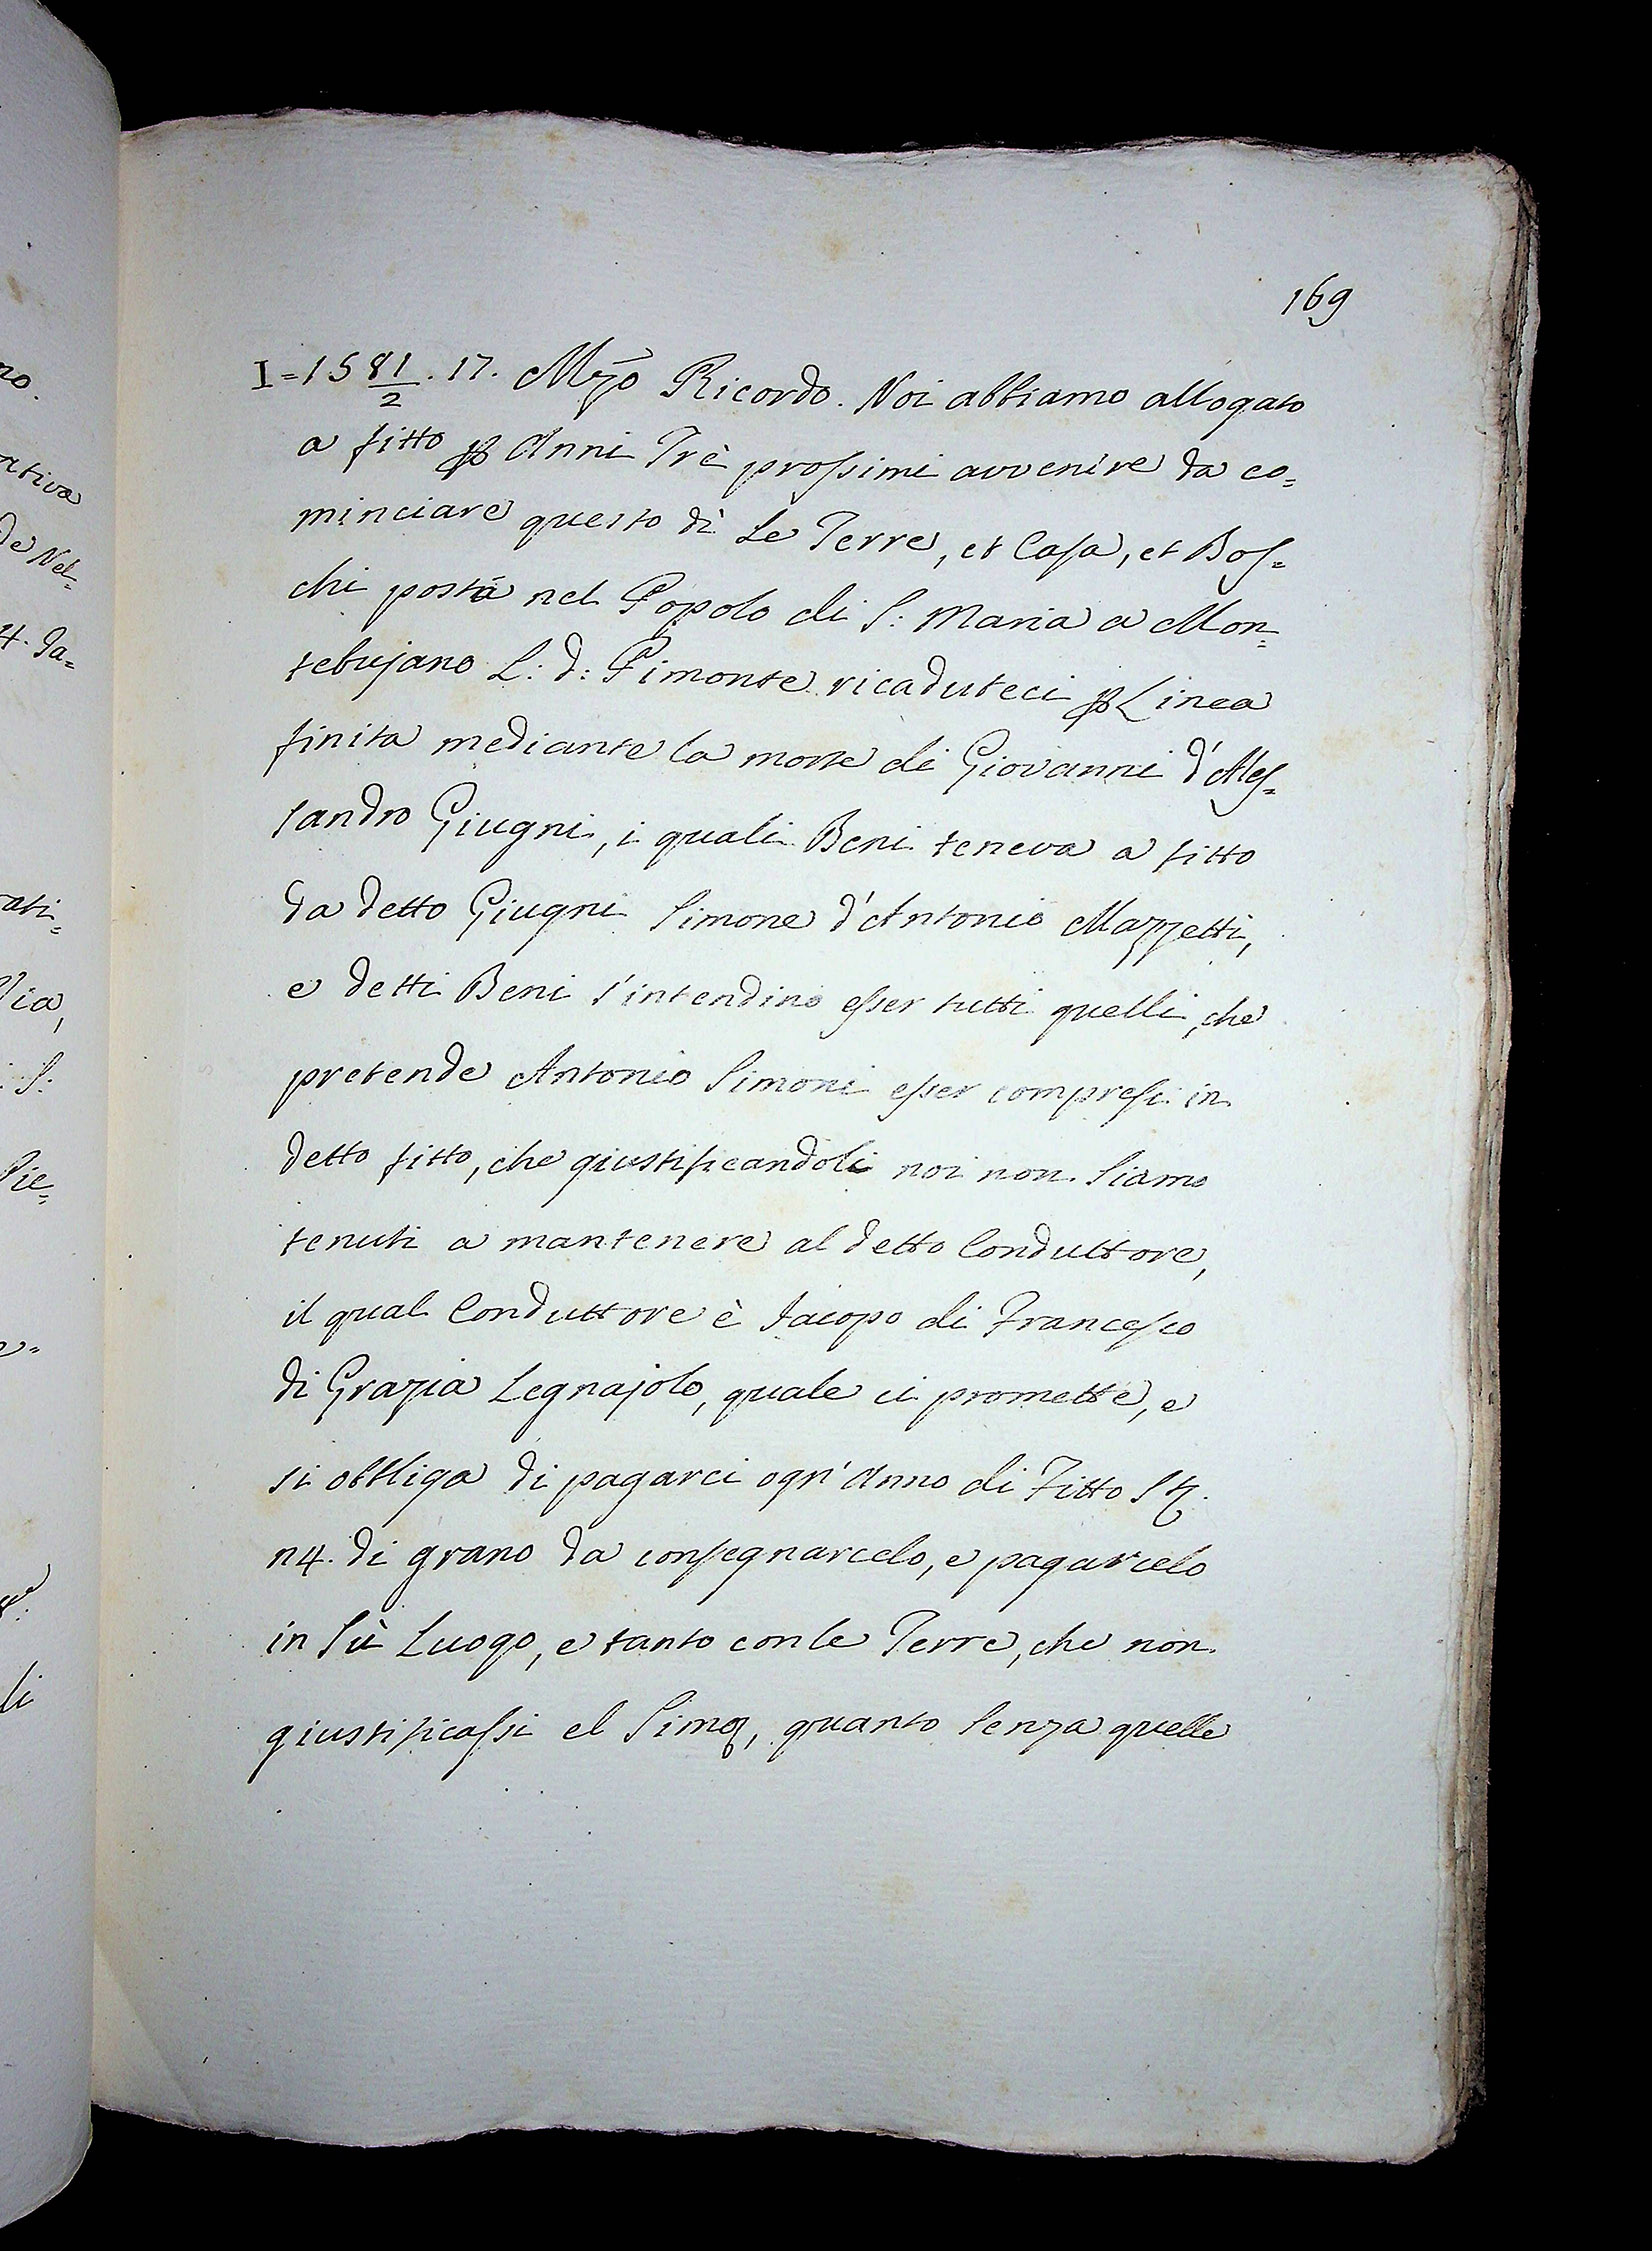 no.
ativa
de Nel=
4. Ja=
rati=
Via,
: S:
Pie=
li
169
I = 1581/2. 17. Mzo Ricordo. Noi abbiamo allogato
a fitto p Anni Trè prossimi avvenire da co=
minciare questo dì Le Terre, et Casa, et Bos=
chi posta nel Popolo di S: Maria a Mon=
tebujano L: d: Pimonte ricaduteci p Linea
finita mediante la morte di Giovanni d'Ales=
sandro Giugni, i quali Beni teneva a fitto
da detto Giugni Simone d'Antonio Mazzetti,
e detti Beni s'intendino esser tutti quelli, che
pretende Antonio Simoni esser compresi in
detto fitto, che giustificandoli noi non siamo
tenuti a mantenere al detto Conduttore,
il qual Conduttore è Jacopo di Francesco
di Grazia Legnajolo, quale ci promette, e
si obbliga di pagarci ogn'Anno di Fitto St.
n4. di grano da consegnarcelo, e pagarcelo
in sù Luogo, e tanto con le Terre, che non
giustificassi el Simo, quanto senza quelle